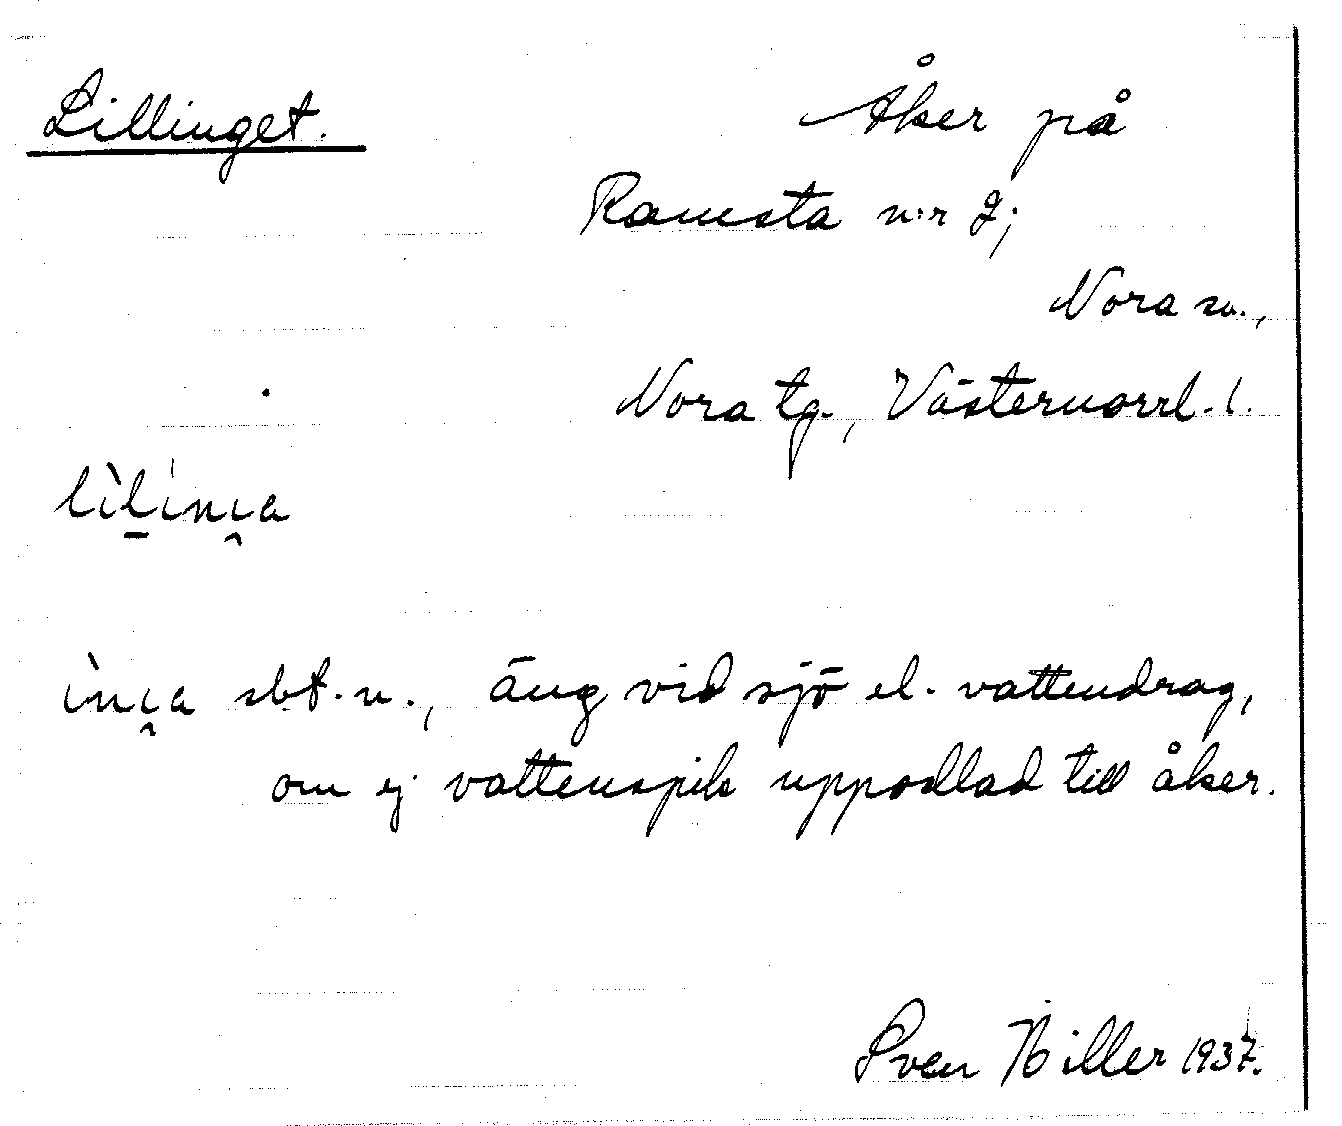 Lillinget.
Åker på
Ramsta n:r 2;
Nora sn.,
Nora tg., Västernorrl. l.
lìl̲ínı̯a
ìnı̯a sbt. n., äng vid sjö el. vattendrag,
om ej vattensjuk uppodlad till åker.
Sven Hiller 1937.